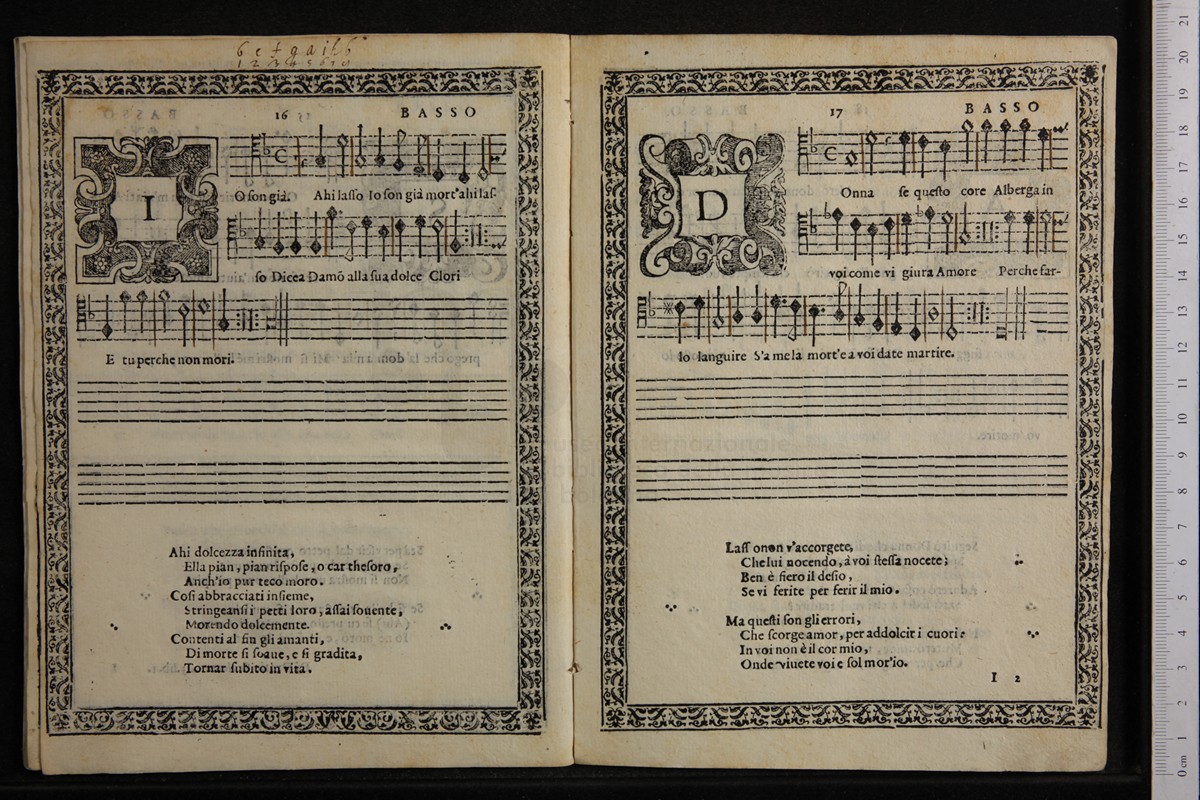 6 e f g a i l 6
1 2 3 4 5 6 7 8
16
BASSO
I
O ſon già. Ahi laſſo Io ſon già mort'ahi laſ-
ſo Dicea Damō alla ſua dolce Clori
E tu perche non mori.
Ahi dolcezza infinita,
Ella pian, pian riſpoſe, o car theſoro,
Anch'io pur teco moro.
Coſi abbracciati inſieme,
Stringeanſi i petti loro, aſſai ſouente,
Morendo dolcemente.
Contenti al fin gli amanti,
Di morte ſi ſoaue, e ſi gradita,
Tornar ſubito in vita.
17
BASSO
D
Onna ſe queſto core Alberga in
voi come vi giura Amore Perche far-
lo languire S'a me la mort'e a voi date martire.
Laſſ onon v'accorgete,
Che lui nocendo, a voi ſteſſa nocete;
Ben è fiero il deſio,
Se vi ferite per ferir il mio.
Ma queſti ſon gli errori,
Che ſcorge amor, per addolcir i cuori:
In voi non è il cor mio,
Onde viuete voi e ſol mor'io.
I 2
museo internazionale
0 cm 1 2 3 4 5 6 7 8 9 10 11 12 13 14 15 16 17 18 19 20 21